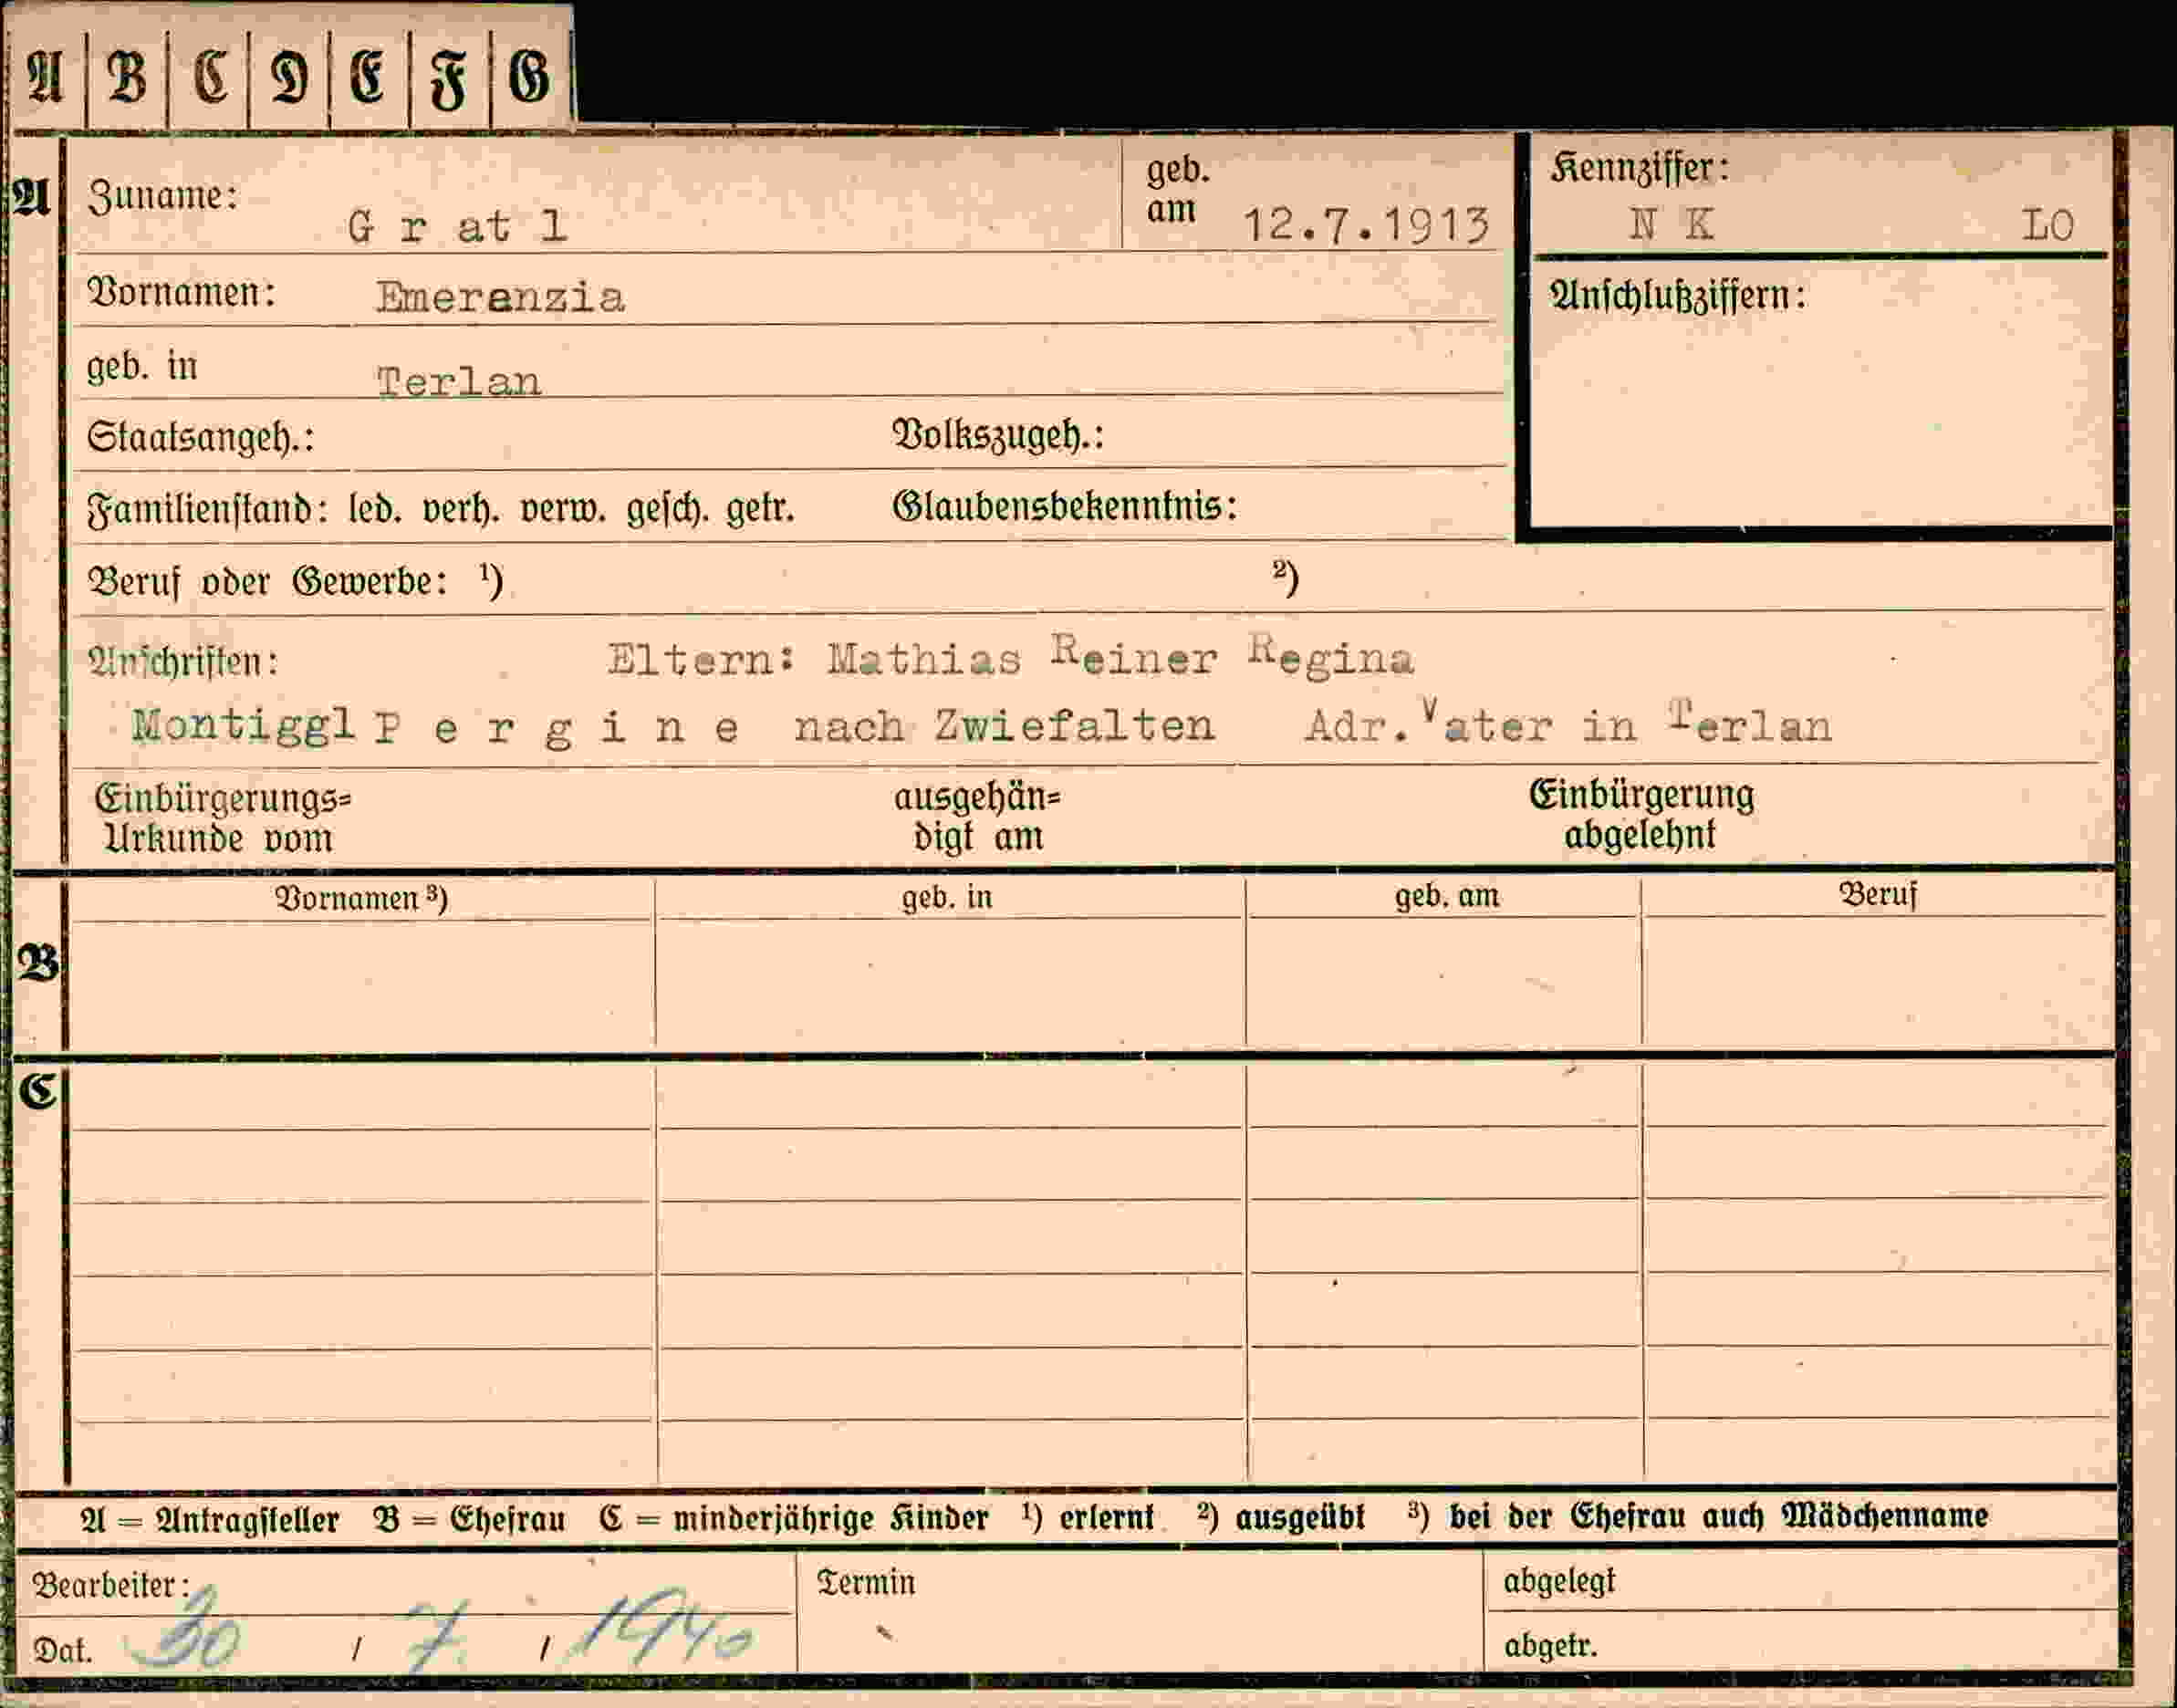 A B C D E F G
A Zuname: G r at l geb. am 12.7.1913 Kennziffer: N K LO
Vornamen: Emerenzia Anschlußziffern:
geb. in Terlan
Staatsangeh.: Volkszugeh.:
Familienstand: led. verh. verw. gesch. getr. Glaubensbekenntnis:
Beruf oder Gewerbe: ¹) ²)
Anschriften: Eltern: Mathias Reiner Regina
Montiggl P e r g i n e nach Zwiefalten Adr. Vater in Terlan
Einbürgerungs= ausgehän= Einbürgerung
Urkunde vom digt am abgelehnt
Vornamen ³) geb. in geb. am Beruf
B
C
A = Antragsteller B = Ehefrau C = minderjährige Kinder ¹) erlernt ²) ausgeübt ³) bei der Ehefrau auch Mädchenname
Bearbeiter: Termin abgelegt
Dat. 30 / 7. / 1940 abgetr.